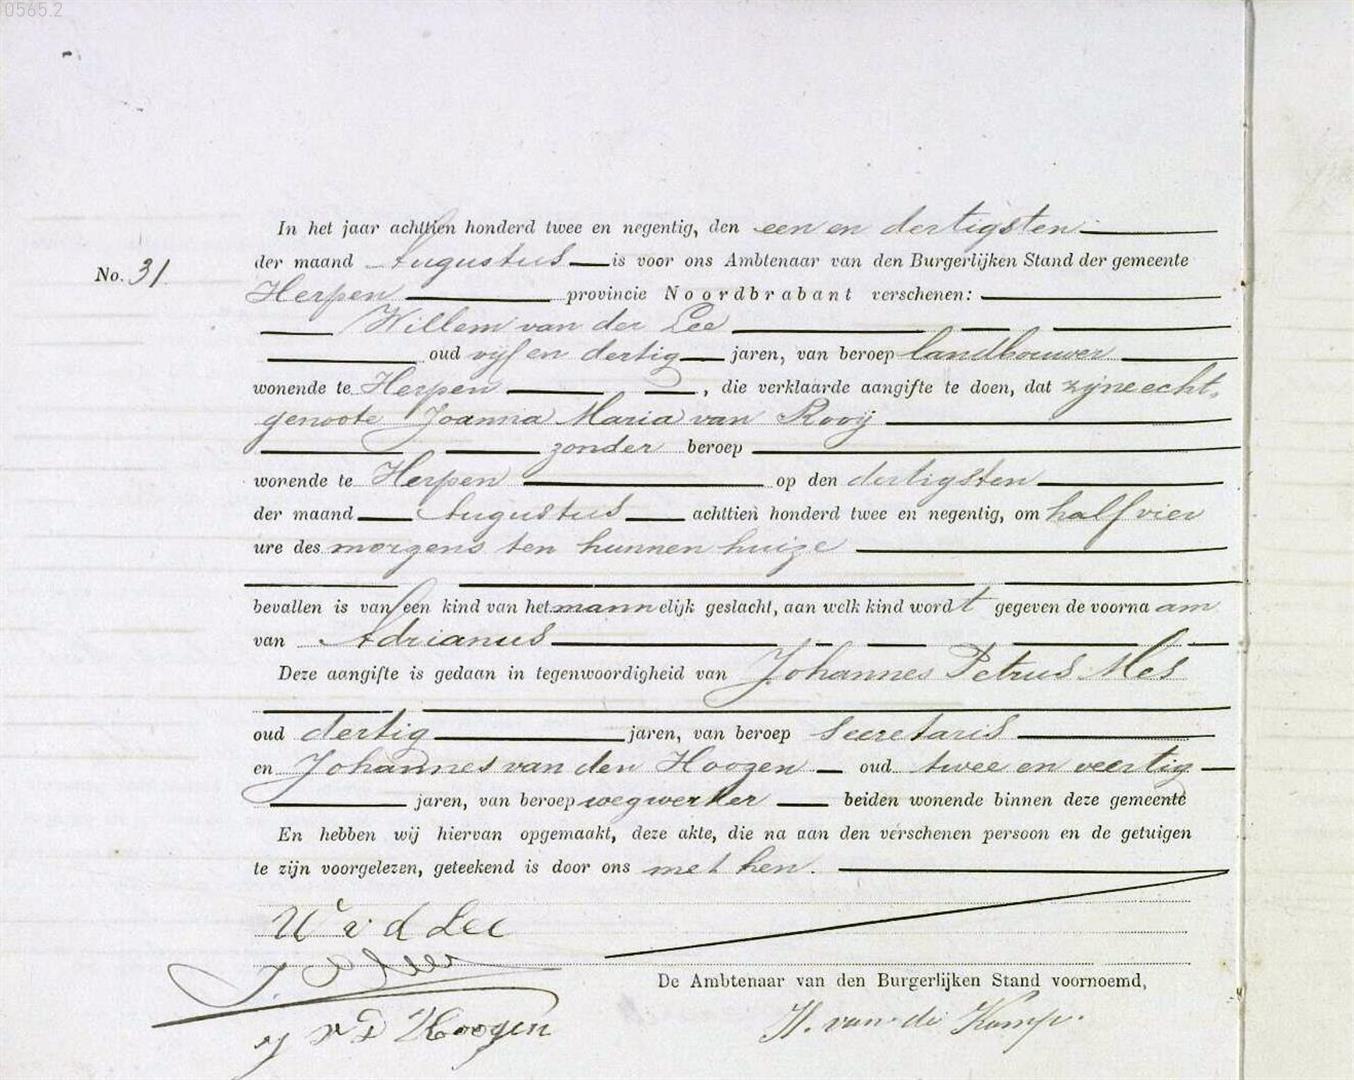 0565.2
In het jaar achttien honderd twee en negentig, den een en dertigsten
No. 31. der maand Augustus is voor ons Ambtenaar van den Burgerlijken Stand der gemeente
Herpen provincie Noordbrabant verschenen:
Willem van der Lee
oud vijf en dertig jaren, van beroep landbouwer
wonende te Herpen, die verklaarde aangifte te doen, dat zijne echt-
genoote Joanna Maria van Rooij
zonder beroep
wonende te Herpen op den dertigsten
der maand Augustus achttien honderd twee en negentig, om half vier
ure des morgens ten hunnen huize
bevallen is van een kind van het mannelijk geslacht, aan welk kind wordt gegeven de voornaam
van Adrianus
Deze aangifte is gedaan in tegenwoordigheid van Johannes Petrus Mes
oud dertig jaren, van beroep secretaris
en Johannes van den Hoogen oud twee en veertig
jaren, van beroep wegwerker beiden wonende binnen deze gemeente
En hebben wij hiervan opgemaakt, deze akte, die na aan den verschenen persoon en de getuigen
te zijn voorgelezen, geteekend is door ons met hen.
W v d Lee
De Ambtenaar van den Burgerlijken Stand voornoemd,
v D Hoogen
H. van de Kamp.